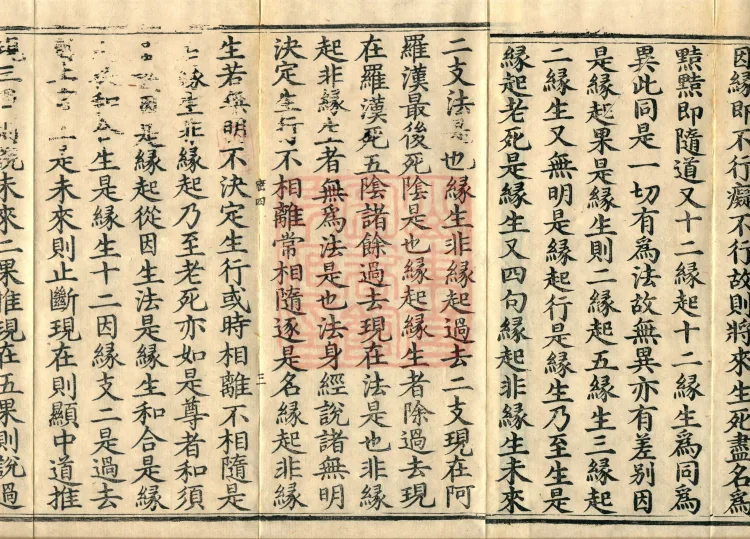 因緣即不行癡不行故則將來生死盡名爲
黠黠即隨道又十二緣起十二緣生爲同爲
異此同是一切有爲法故無異亦有差別因
是緣起果是緣生則二緣起五緣生三緣起
二緣生又無明是緣起行是緣生乃至生是
緣起老死是緣生又四句緣起非緣生未來
二支法是也緣生非緣起過去二支現在阿
羅漢最後死陰是也緣起緣生者除過去現
在羅漢死五陰諸餘過去現在法是也非緣
起非緣生者無爲法是也法身經說諸無明
決定生行不相離常相隨逐是名緣起非緣
密四 三
生若無明不決定生行或時相離不相隨是
緣生非緣起乃至老死亦如是尊者和須
因是緣起從因生法是緣生和合是緣
和合生是緣生十二因緣支二是過去
二是未來則止斷現在則顯中道推
三說未來二果推現在五果則說過